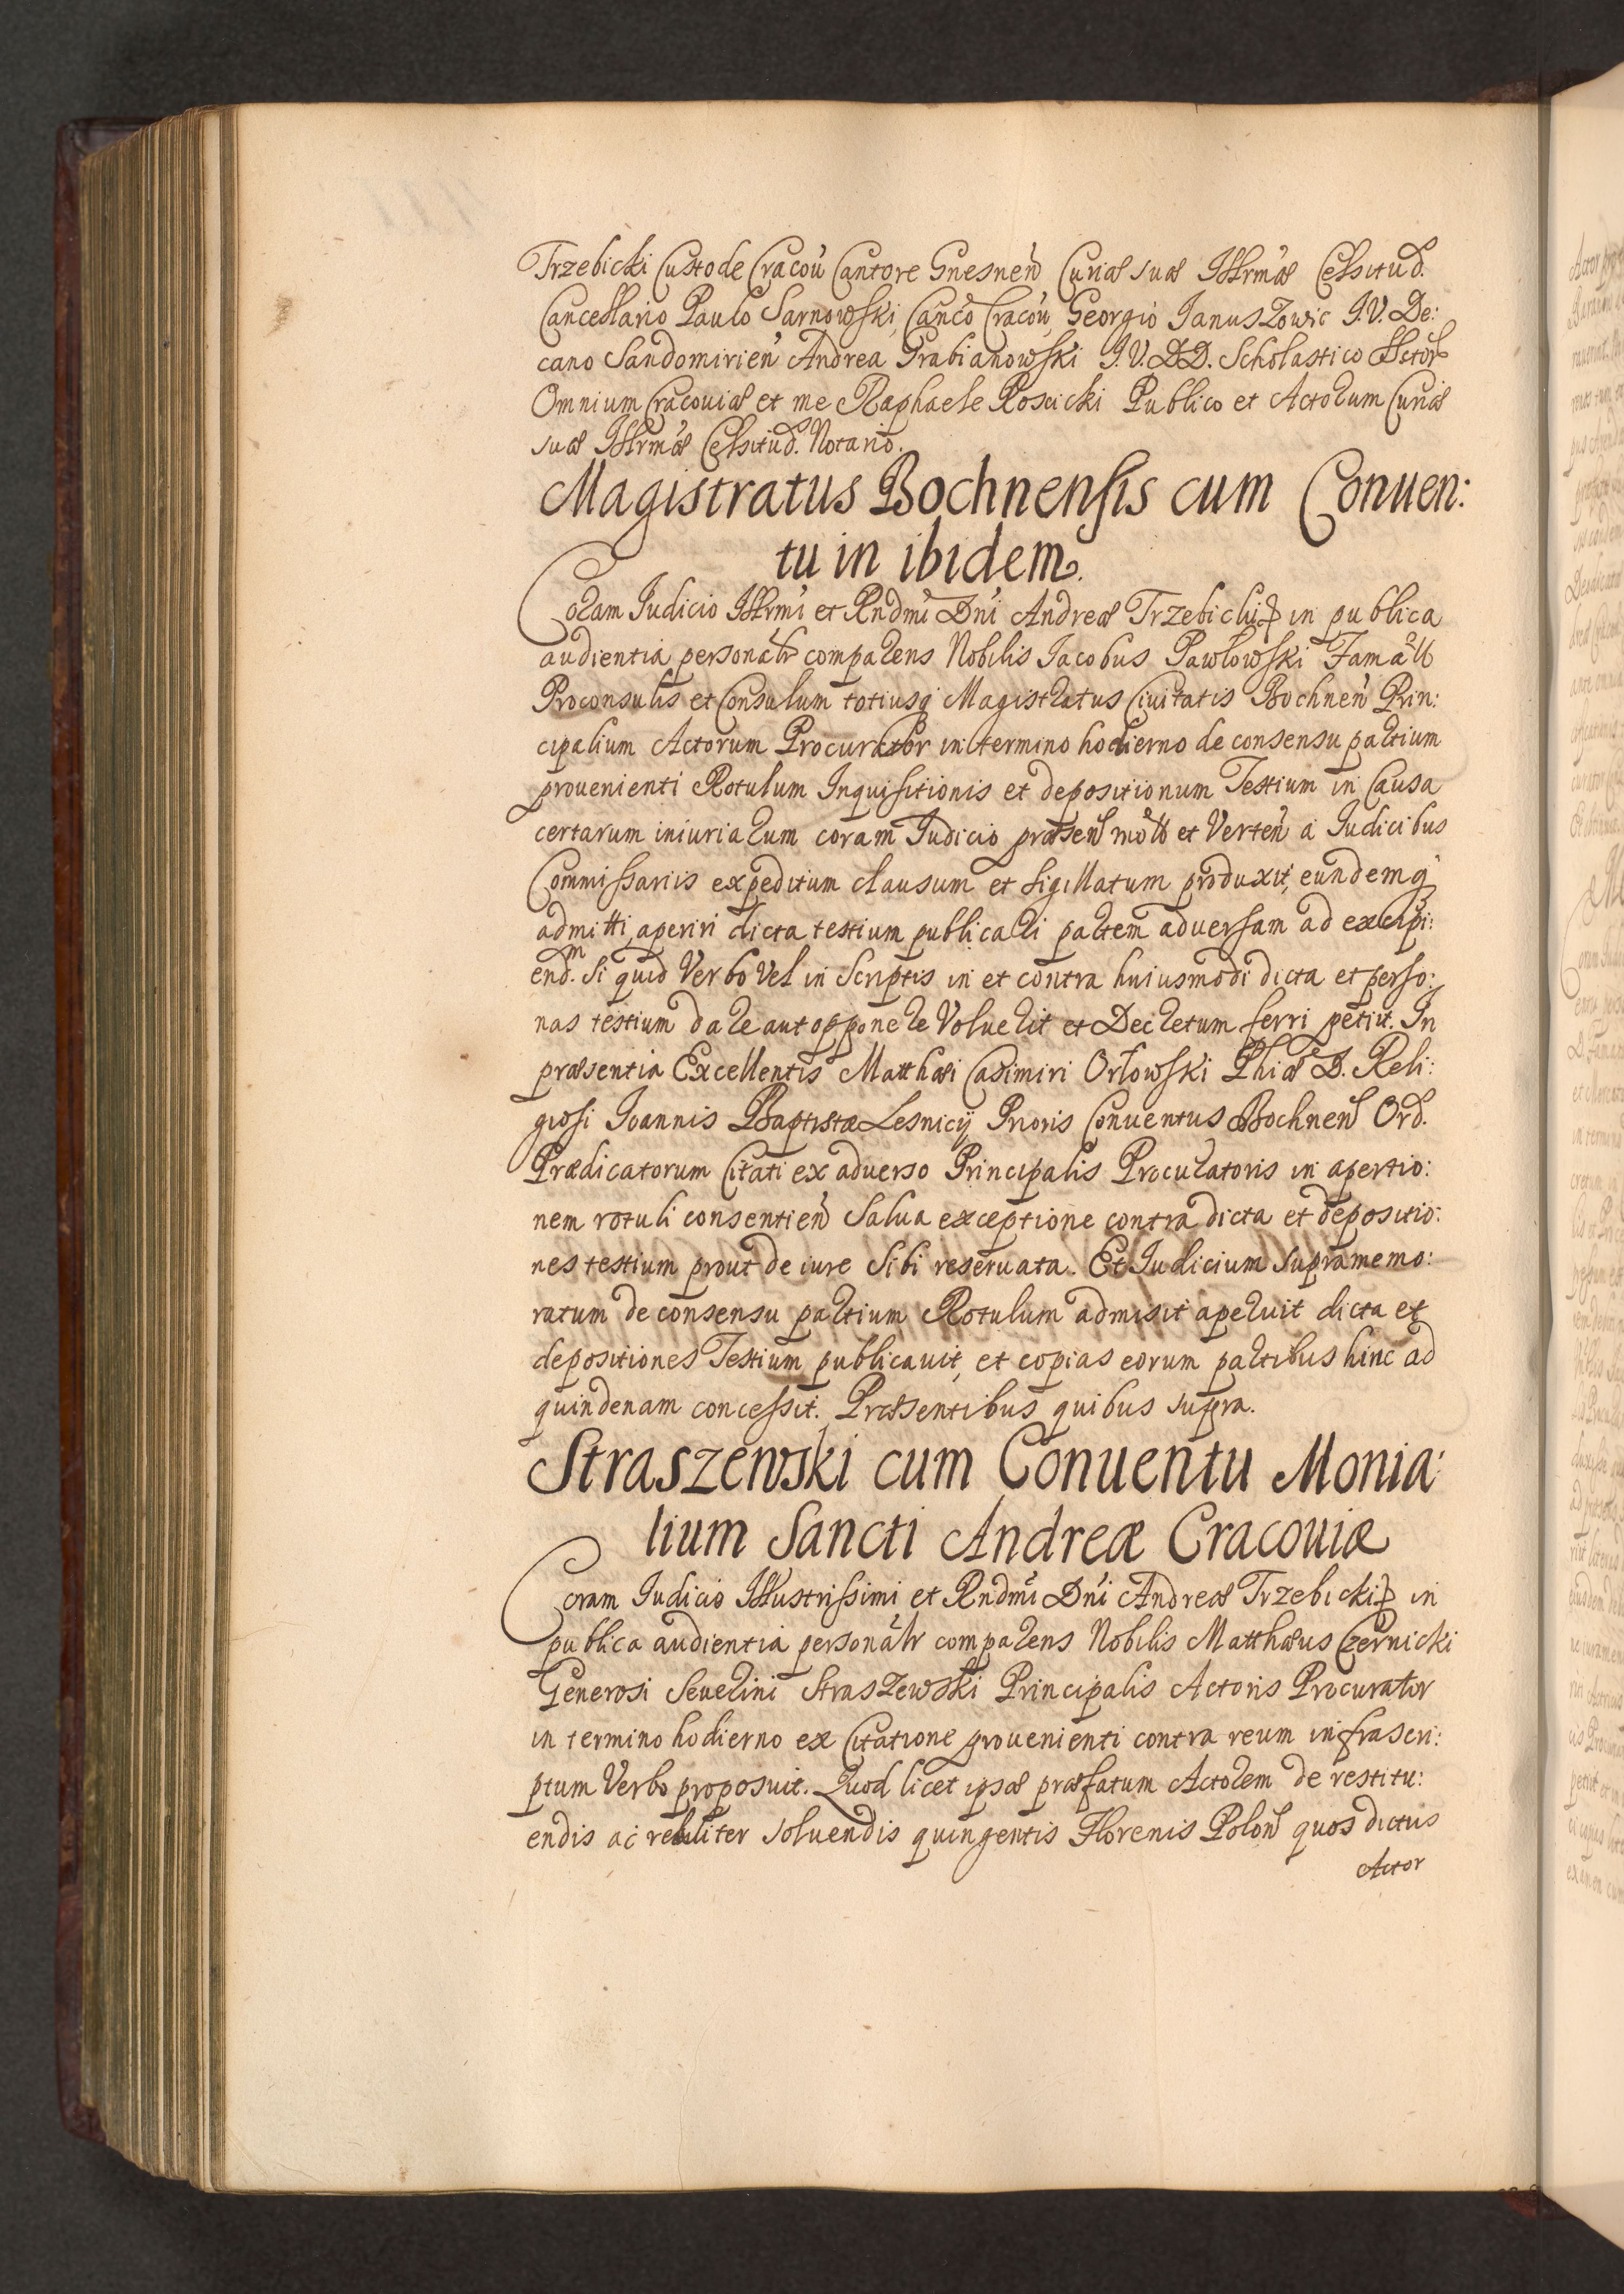 Trzebicki Custode Cracoů Cantore Gnesneň Curiæ suæ Illrmæ Celsitud.
Cancellario Paulo Sarnowski Canco Cracoů Georgio Januszowic J.V. De:
cano Sandomirień Andrea Grabianowski J.V.DD. Scholastico
Omnium Cracouiæ et me Raphaele Roscicki Publico et Actorum Curiæ
suæ Illrmæ Celsitud. Notario.
Magistratus Bochnensis cum Conuen:
tu in ibidem.
Coram Judicio Illrmi et Rndmi Dni Andreæ Trzebicki in publica
audientia personalr comparens Nobilis Jacobus Pawłowski Famatt
Proconsulis et Consulum totiusq Magistratus Ciuitatis Bochneń Prin:
cipalium Actorum Procurator in termino hodierno de consensu partium
prouenienti Rotulum Inquisitionis et depositionum Testium in Causa
certarum iniuriarum coram Judicio præsen mott et Verteń a Judicibus
Commissariis expeditum clausum et sigillatum produxit, eundemq
admitti, aperiri dicta testium publicari partem aduersam ad excipi:
endm. si quid Verbo Vel in Scriptis in et contra huiusmodi dicta et perso:
nas testium dare aut opponere Voluerit et Decretum ferri petiit. In
præsentia Excellentis Matthæi Casimiri Orłowski Phiæ D. Reli:
giosi Joannis Baptistæ Lesnicÿ Prioris Conuentus Bochnen Ord.
Prædicatorum Citati ex aduerso Principalis Procuratoris in apertio:
nem rotuli consentień Salua exceptione contra dicta et depositio:
nes testium prout de iure sibi reseruata. Et Judicium supramemo:
ratum de consensu partium Rotulum admisit aperuit dicta et
depositiones Testium publicauit, et copias eorum partibus hinc ad
quindenam concessit. Præsentibus quibus supra.
Straszewski cum Conuentu Monia:
lium Sancti Andreæ Cracouiæ
Coram Judicio Illustrissimi et Rndmi Dni Andreæ Trzebicki in
publica audientia personalr comparens Nobilis Matthæus Czernicki
Generosi Seuerini Straszewski Principalis Actoris Procurator
in termino hodierno ex Citatione prouenienti contra reum infrascri:
ptum Verbo proposuit. Quod licet ipsæ præfatum Actorem de restitu:
endis ac realiter soluendis quingentis Florenis Polon quos dictus
Actor